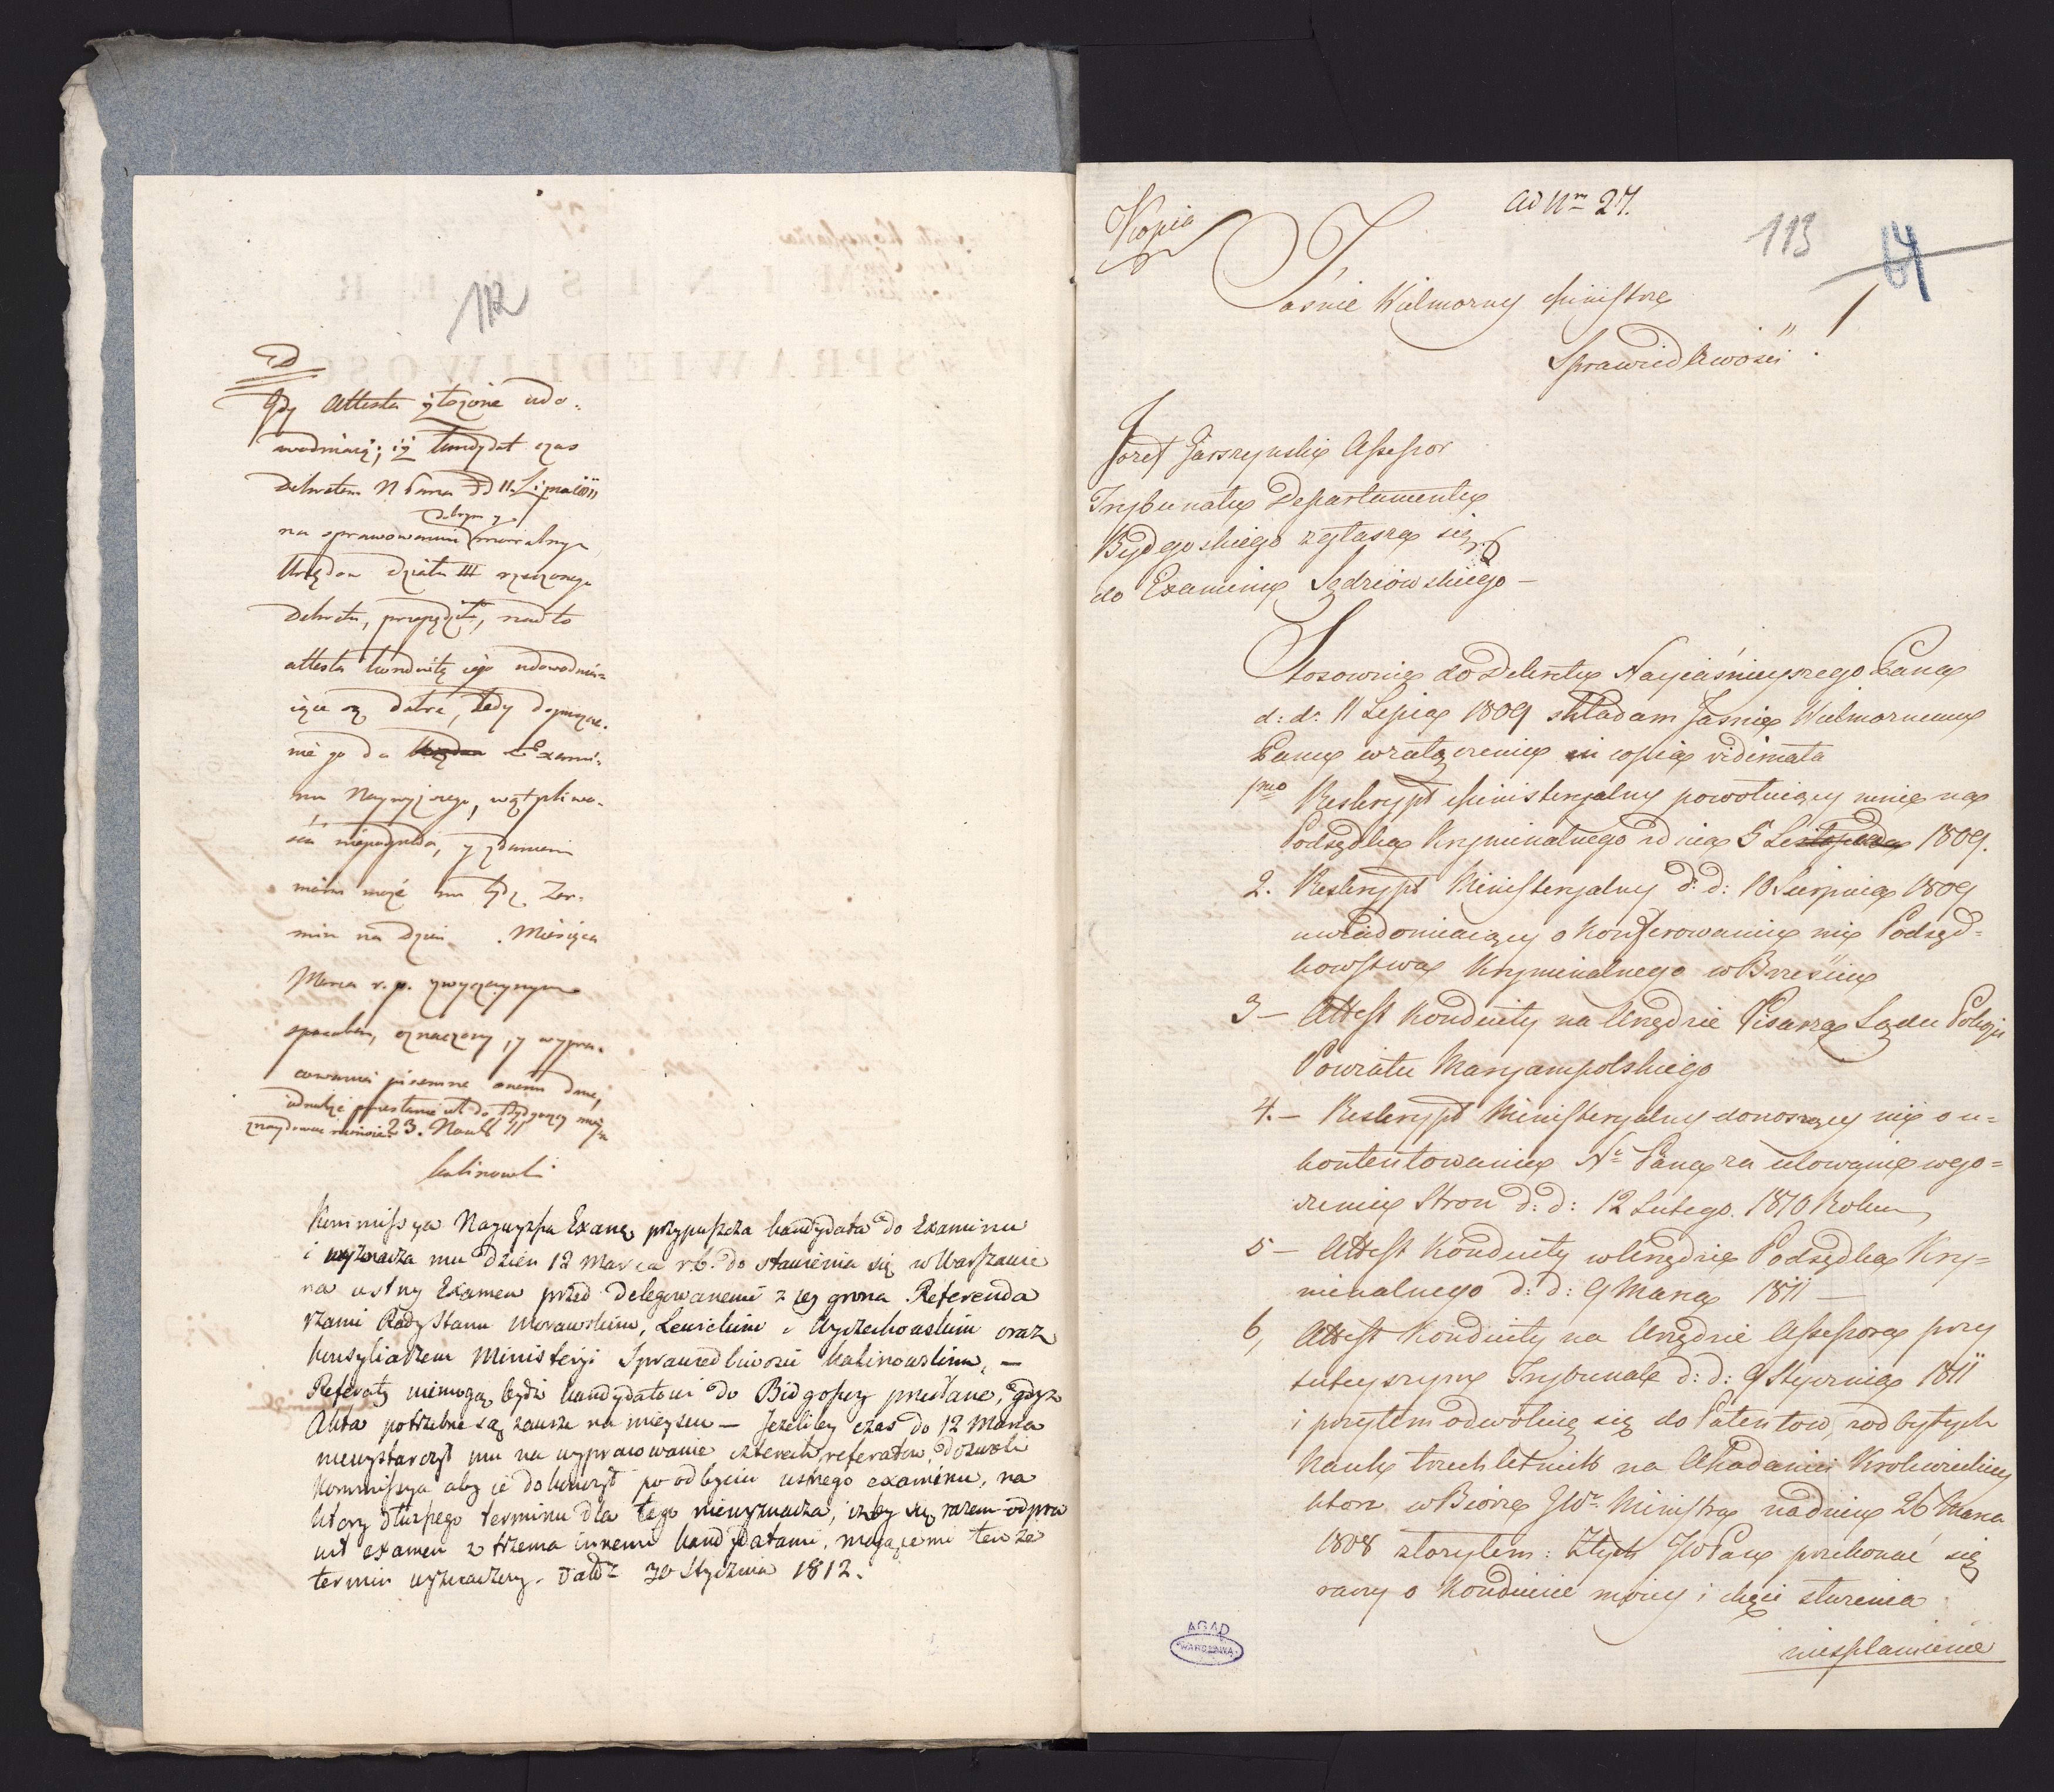 112
Gdy Attesta złożone udo-
wodniaią, iż kandydat czas
Dekretem N. Pana dd 11. Lipca
dobrym y
na sprawowaniu moralnym
Urzędu działu III rzeczonego
Dekretu, przepędził, nadto
attesta konduitę iego udowodnia-
iące są dobre, tedy dopuszcze-
nie go do Exami-
nu Naywyższego, wątpliwo-
ści niepodpada, y zdaniem
moim może mu bydź Ter-
min na dzień . Miesiąca
Marca r. p. zwyczaynym
sposobem, oznaczony, y wypra-
cowania piemne onemu dane,
23.
Kalinowski
Kommissya Naywyższa Exam. przypuszcza kandydata do Examinu
i wyznacza mu dzień 12 Marca r.b. do stawienia się w Warszawie
na ustny Examen przed Delegowanemi z iey grona Referenda
rzami Rady Stanu Morawskim, Lewickim i Wyczechowskim oraz
konsyliarzem Ministeryi Sprawiedliwości Kalinowskim. —
Referaty niemogą bydź kandydatowi do Bidgoszy przesłane, gdyż
Akta potrzebne są zawsze na mieyscu — Jeżeliby czas do 12 Marca
niewystarczył mu na wypracowanie czterech referatów, dozwoli
Kommissya aby ie dokończył po odbyciu ustnego examinu, na
ktory dłuższego terminu dla tego niewyznacza, iżby się razem odpra
wił examen z trzema innemi kandydatami, maiącemi tenże
termin wyznaczony. Datt 30 Stycznia 1812.
Kopia
ad Nrm 27.
113
64
Jaśnie Wielmożny Ministrze
Sprawiedliwości !
Jozef Jarszynski Assessor
Trybunału Departamentu
Bydgoskiego zgłasza się
do Examinu Sędziowskiego —
Stosownie do Dekretu Nayiaśnieyszego Pana
d: d: 11 Lipca 1809 składam Jaśnie Wielmożnemu
Panu w załączeniu in copia vidimata
1mo Reskrypt Ministeryalny powołuiący mnie na
Podsędka Kryminalnego z dnia 5 Listopada 1809.
2. Reskrypt Ministeryalny d: d: 18 Sierpnia 1809
uwiadomiaiący o konferowaniu mi Podsęd-
kowstwa Kryminalnego w Brześciu
3 — Attest Konduity na Urzędzie Pisarza Sądu Policyi
Powiatu Maryampolskiego
4. — Reskrypt Ministeryalny donoszący mi o u-
kontentowaniu N. Pana za ułowanie wgo-
dzenie Stron d: d: 12 Lutego 1810 Roku
5 — Attest Konduity w Urzędzie Podsędka Kry-
minalnego d: d: 9 Marca 1811 —
6, Attest Konduity na Urzędzie Assessora przy
tuteyszym Trybunale d: d: 9 Stycznia 1811
i przytem odwołuię się do Patentow, z odbytych
Nauk trzechletnich na Akademii Krolewieckiey
ktore w Biorze JW. Ministra na dniu 26 Marca
1808 złożyłem: Z tych JW Pan przekonać się
raczy o Konduicie moiey i chęci służenia
niesplamienie
AGAD
WARSZAWA